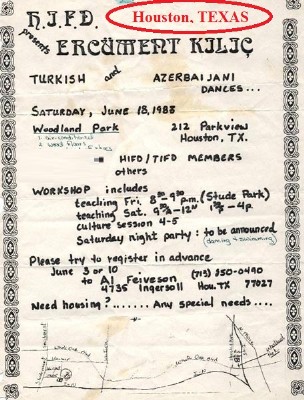 H.I.F.D.
Houston, TEXAS
presents
ERCÜMENT KILIÇ
TURKISH and AZERBAIJANI
DANCES...
SATURDAY, JUNE 18, 1988
Woodland Park
212 Parkview
1. air conditioned
2. wood floors
Houston, TX.
HIFD/TIFD MEMBERS
others
WORKSHOP includes
teaching Fri. 8³⁰-9³⁰ p.m. (Stude Park)
teaching Sat.
culture session 4-5
Saturday night party: to be announced
(dancing & swimming)
Please try to register in advance
June 3 or 10
to Al Feiveson
(713) 850-0490
4735 Ingersoll
Hou. TX 77027
Need housing?....... Any special needs....